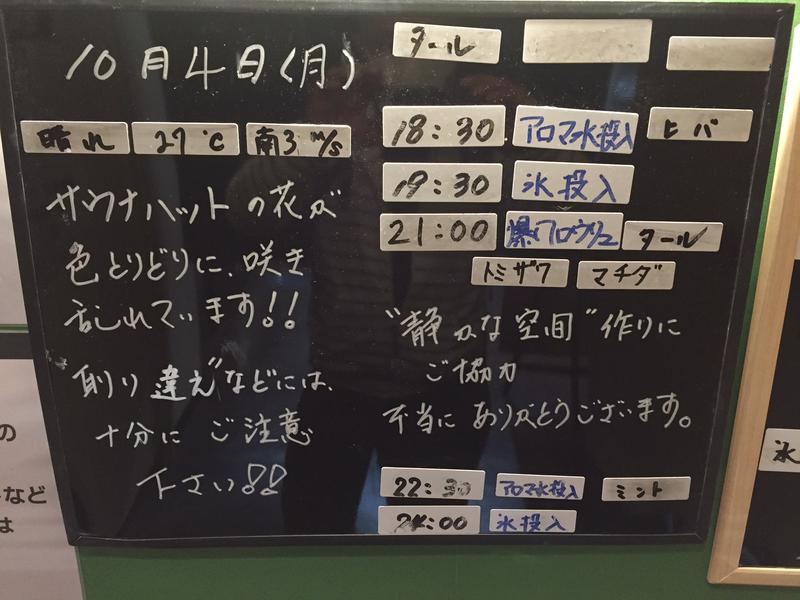 10月4日(月)
晴れ 27℃ 南3m/s
サウナハットの花が
色とりどりに、咲き
乱れています!!
"取り違え"などには、
十分に ご注意
下さい!!
タール
18:30 アロマ水投入 ヒバ
19:30 氷投入
21:00 爆風ロウリュ タール
トミザワ マチダ
"静かな空間"作りに
ご協力
本当に ありがとうございます。
22:30 アロマ水投入 ミント
24:00 氷投入
の
など
は
氷